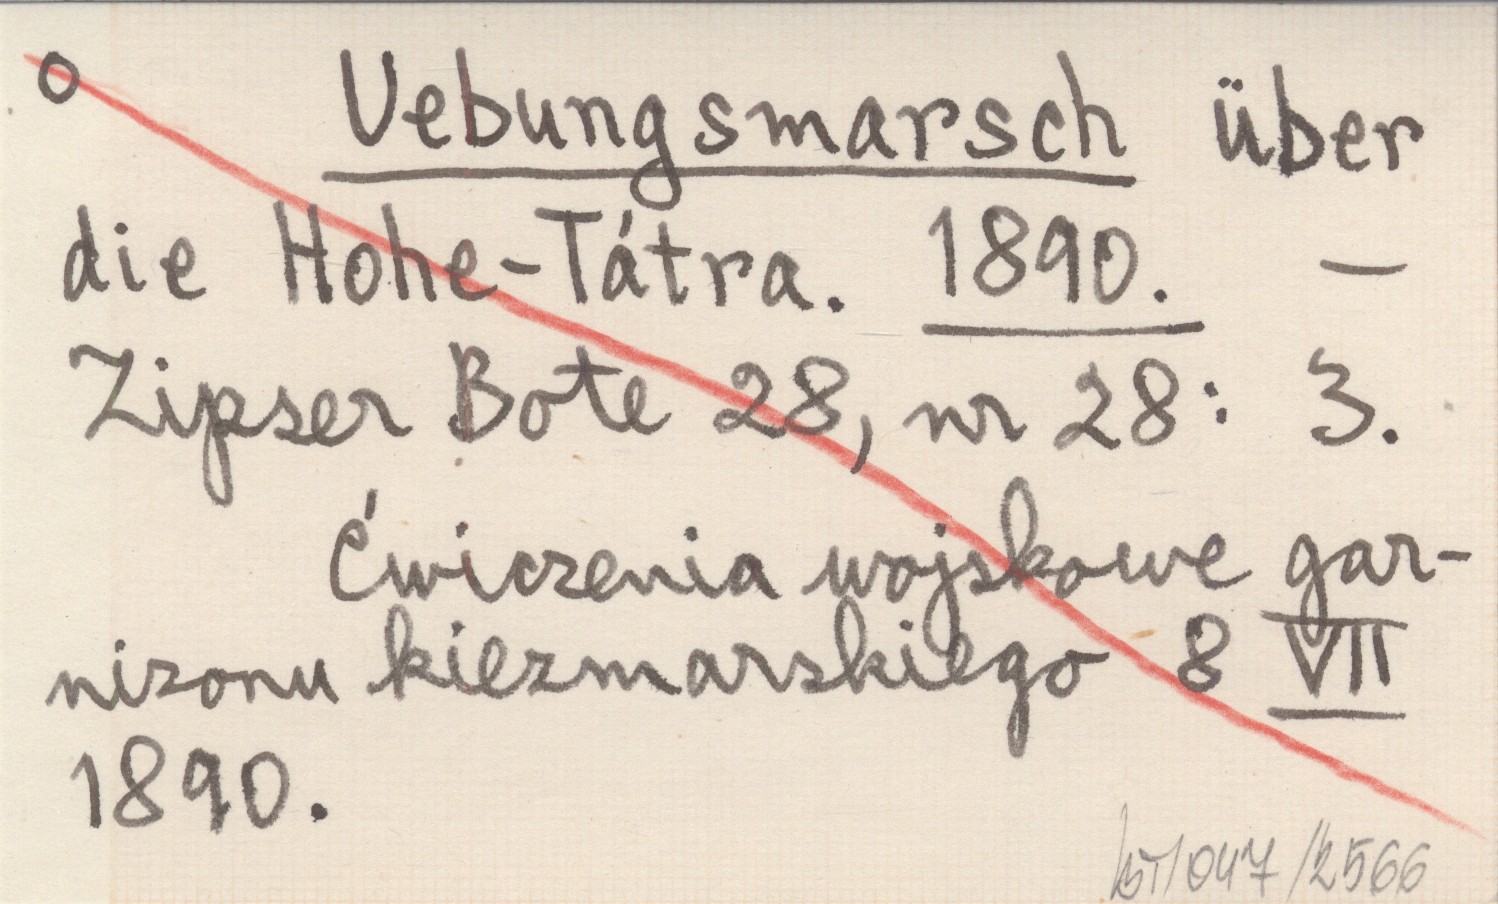 o Uebungsmarsch über
die Hohe-Tátra. 1890. —
Zipser Bote 28, nr 28: 3.
Ćwiczenia wojskowe gar-
nizonu kiezmarskiego 8 VII
1890.
/047/2566